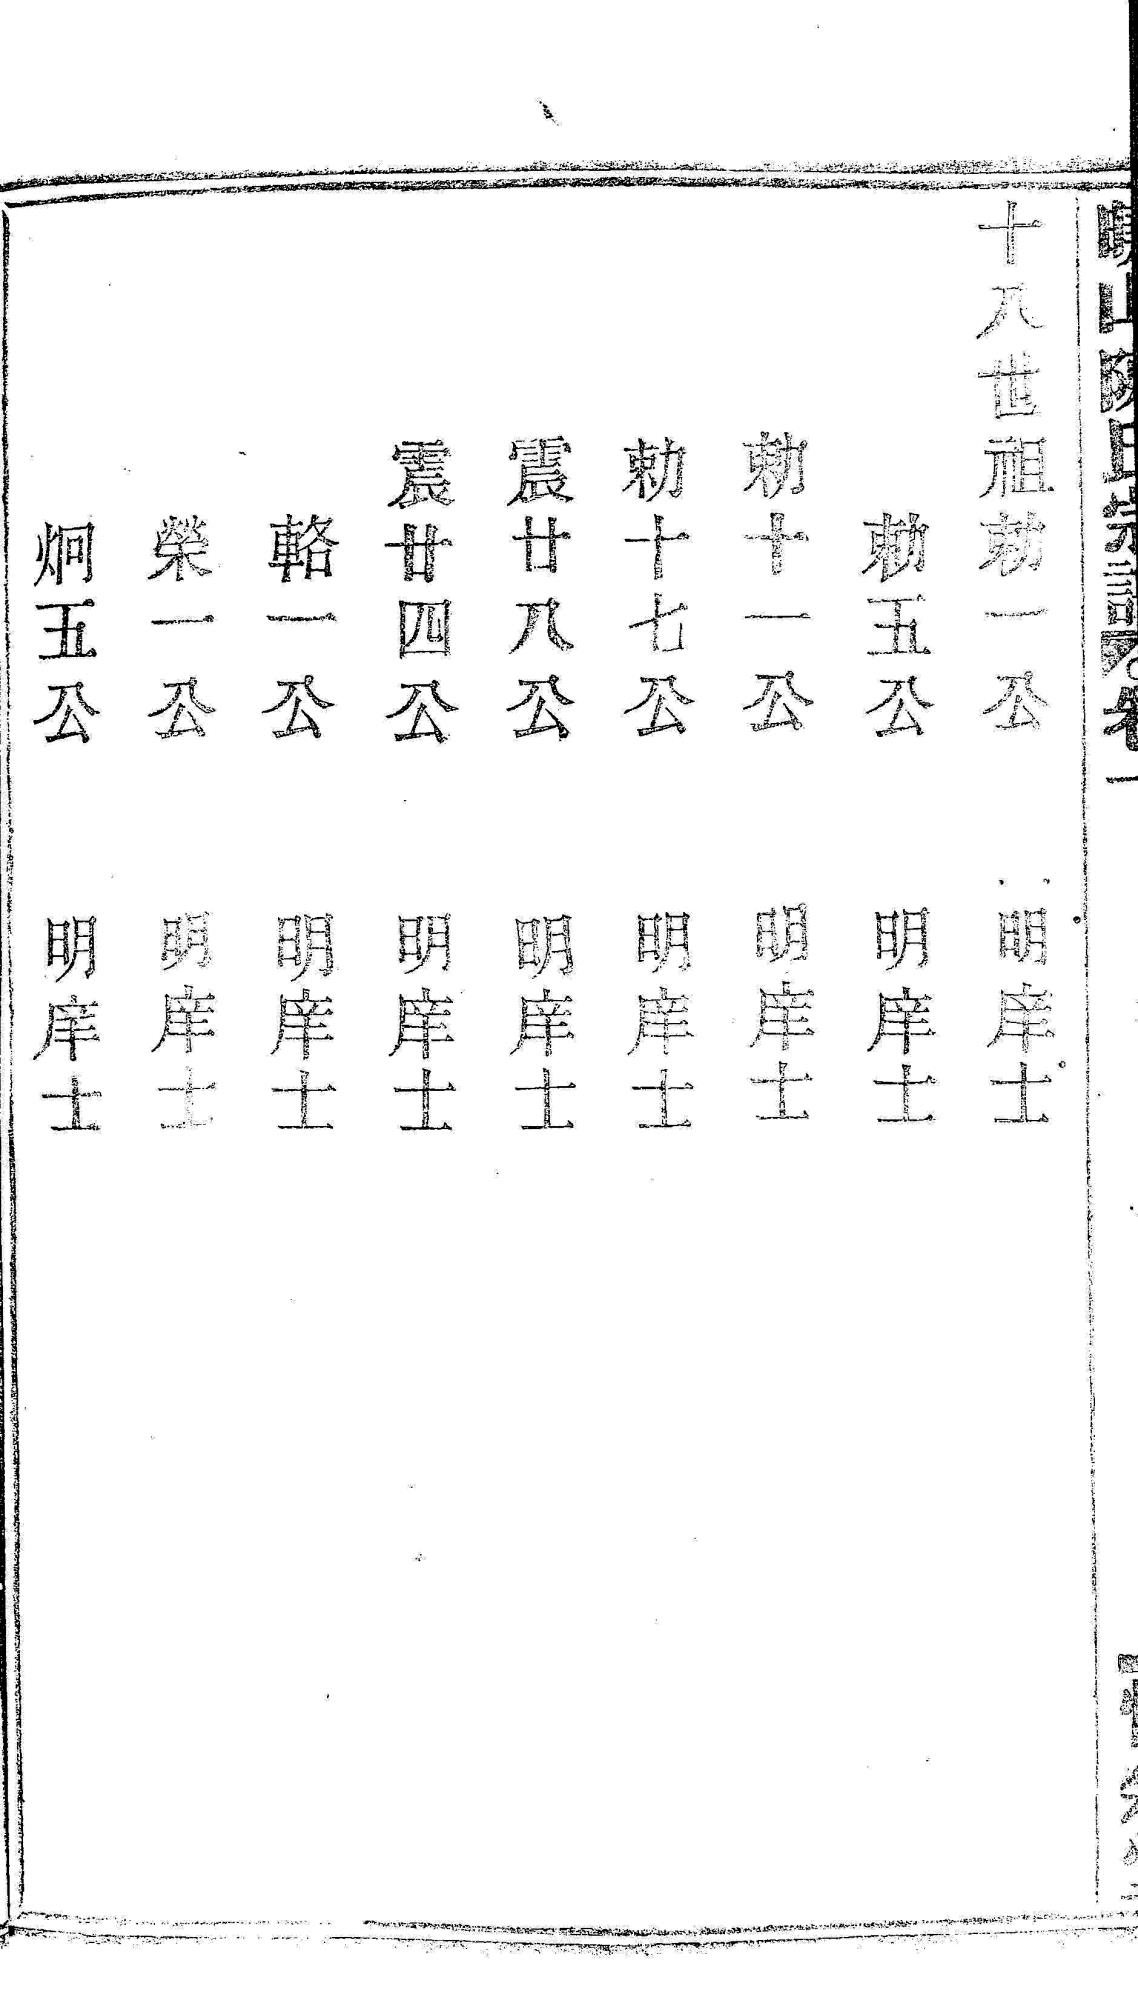 山陳氏宗譜 卷一
十八世祖勑一公 明庠士
勑五公 明庠士
勑十一公 明庠士
勑十七公 明庠士
震廿八公 明庠士
震廿四公 明庠士
輅一公 明庠士
榮一公 明庠士
炯五公 明庠士